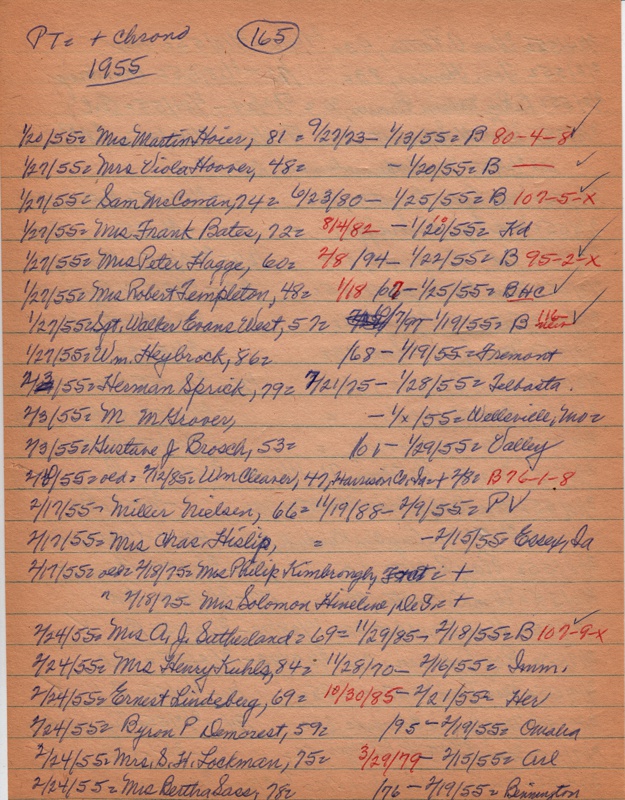 PT= + Chrono 165
1955
1/20/55= Mrs Martin Hoier, 81 = 9/27/73- 1/13/55= B 80-4-8 ✓
1/27/55= Mrs Viola Hoover, 48= - 1/20/55= B — ✓
1/27/55= Sam McCowan, 74= 6/23/80- 1/25/55= B 107-5-X ✓
1/27/55= Mrs Frank Bates, 72= 8/4/82 - 1/20/55= Kd
1/27/55= Mrs Peter Hagge, 60= 2/8/94- 1/22/55= B 95-2-X ✓
1/27/55= Mrs Robert Templeton, 48= 1/18/67- 1/25/55= B HC ✓
1/27/55= Sgt. Walker Evans West, 57= 7/97- 1/19/55= B 116- ✓
1/27/55= Wm. Heybrock, 86= /68- 1/19/55= Fremont
2/3/55= Herman Sprick, 79= 7/21/75- 1/28/55= Telbasta.
2/3/55= M McGrover, - 1/x/55= Wellsville, Mo=
2/3/55= Gustave J Brosch, 53= /01- 1/29/55= Valley
2/10/55= old= 2/12/85= Wm Cleaver, 47, Harrison Co. Ia= + 2/8= B 76-1-8
2/17/55- Miller Nielsen, 66= 11/19/88- 2/9/55= PV
2/17/55= Mrs Chas. Hislip, = - 2/15/55= Essex, Ia
2/17/55= old= 2/18/75= Mrs Philip Kimbrough, +
" 2/18/75- Mrs Solomon Hineline, DeSo +
2/24/55= Mrs A. J. Sutherland= 69= 11/29/85- 2/18/55= B 107-9-X ✓
2/24/55= Mrs Henry Kuhls, 84= 11/28/70- 2/16/55= Imm.
2/24/55= Ernest Lindeberg, 69= 10/30/85- 2/21/55= Her
2/24/55= Byron P Demorest, 59= /95- 2/19/55= Omaha
2/24/55= Mrs. S. H. Lockman, 75= 3/29/79- 2/15/55= Arl
2/24/55= Mrs Bertha Sass, 78= /76- 2/19/55= Bennington